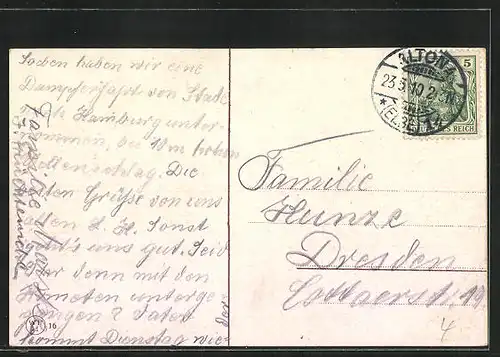 Soeben haben wir eine
Dampferfahrt von Stade
nach Hamburg unter-
nommen, bei 10 m hohem
Wellenschlag. Die
besten Grüße von uns
allen d. H. Sonst
geht's uns gut. Seid
Ihr denn mit dem
Kometen unterge
gangen? Vater
kommt Dienstag wie-
der
Familie
ALTONA
23.5.10.2
(ELBE)
5
REICH
Familie
Hunze
Dresden
Cottaerstr. 19
4
16